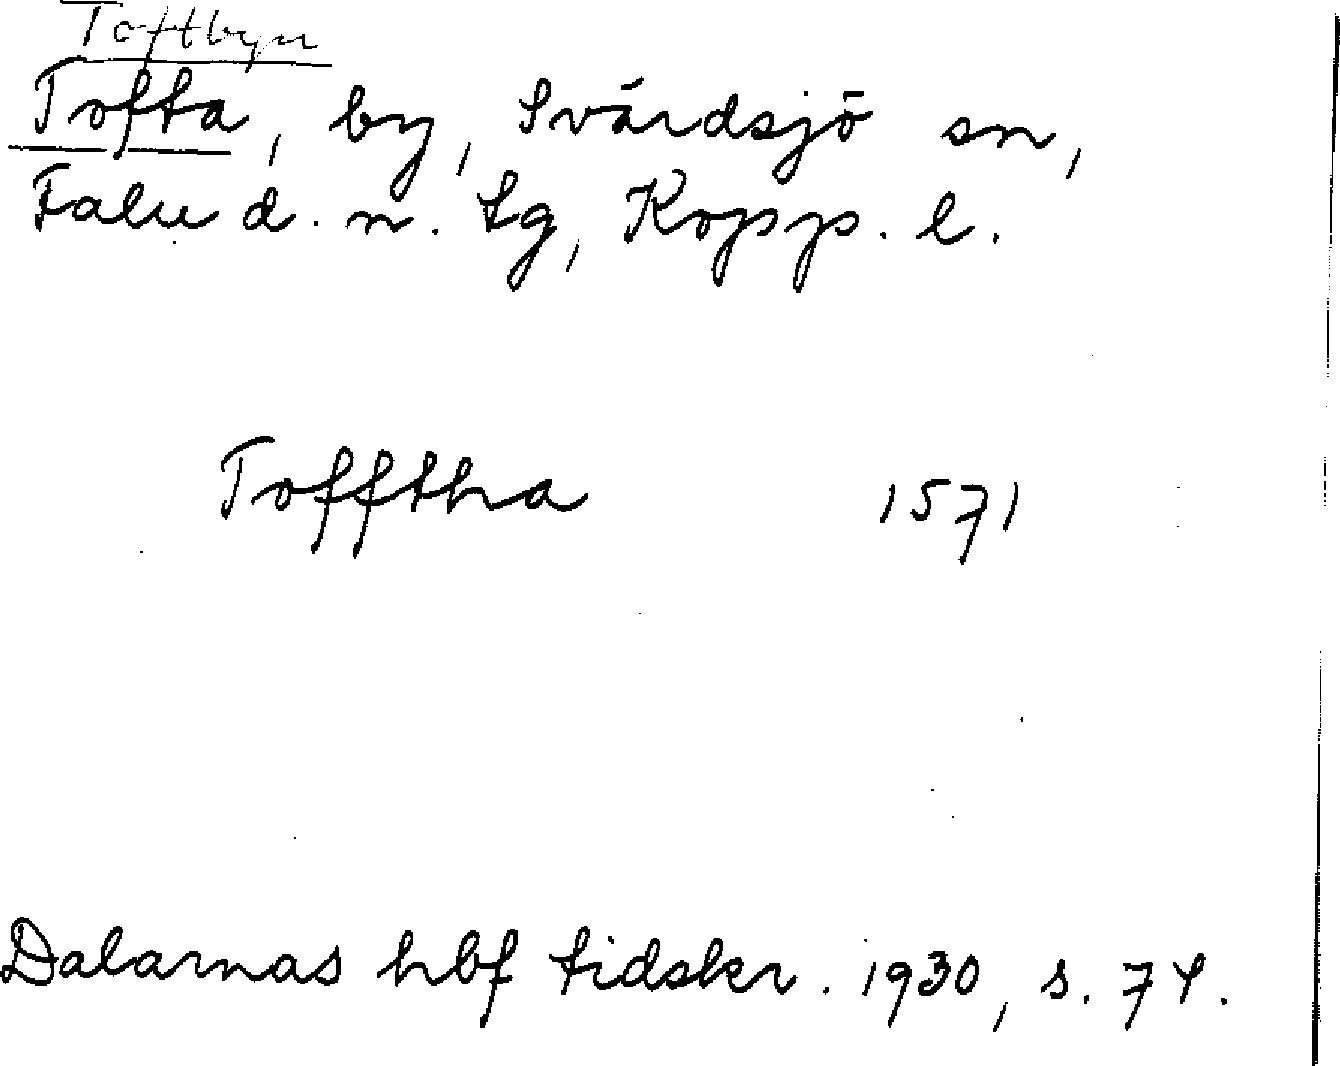 Toftbyn
Tofta, by, Svärdsjö sn,
Falu d. n. tg, Kopp. l.
Tofftha 1571
Dalarnas hbf tidskr. 1930, s. 74.